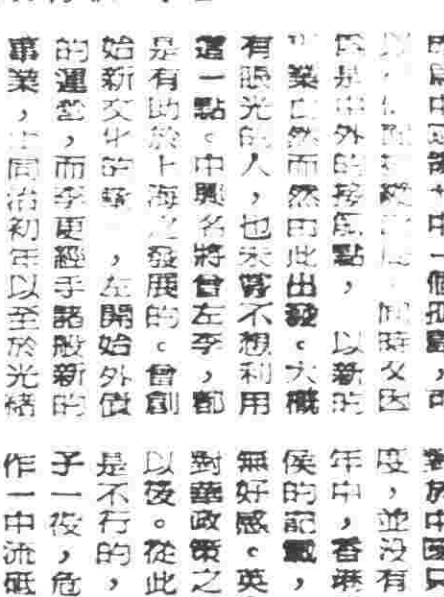 中一個孤島，
同時又因
是中外的接觸點，以新的
業自然而然由此出發。大概
有眼光的人，也未嘗不想利用
這一點。中興名將曾左李，都
是有助於上海之發展的。曾創
始新文化的，左開始外債
的運營，而李更經手諸般新的
事業，同治初年以至於光緒
對於中國
度，並没有
年中，香港
侯的記載，
無好感。英
對華政策之
以後。從此
是不行的，
子一夜，危
作一中流砥